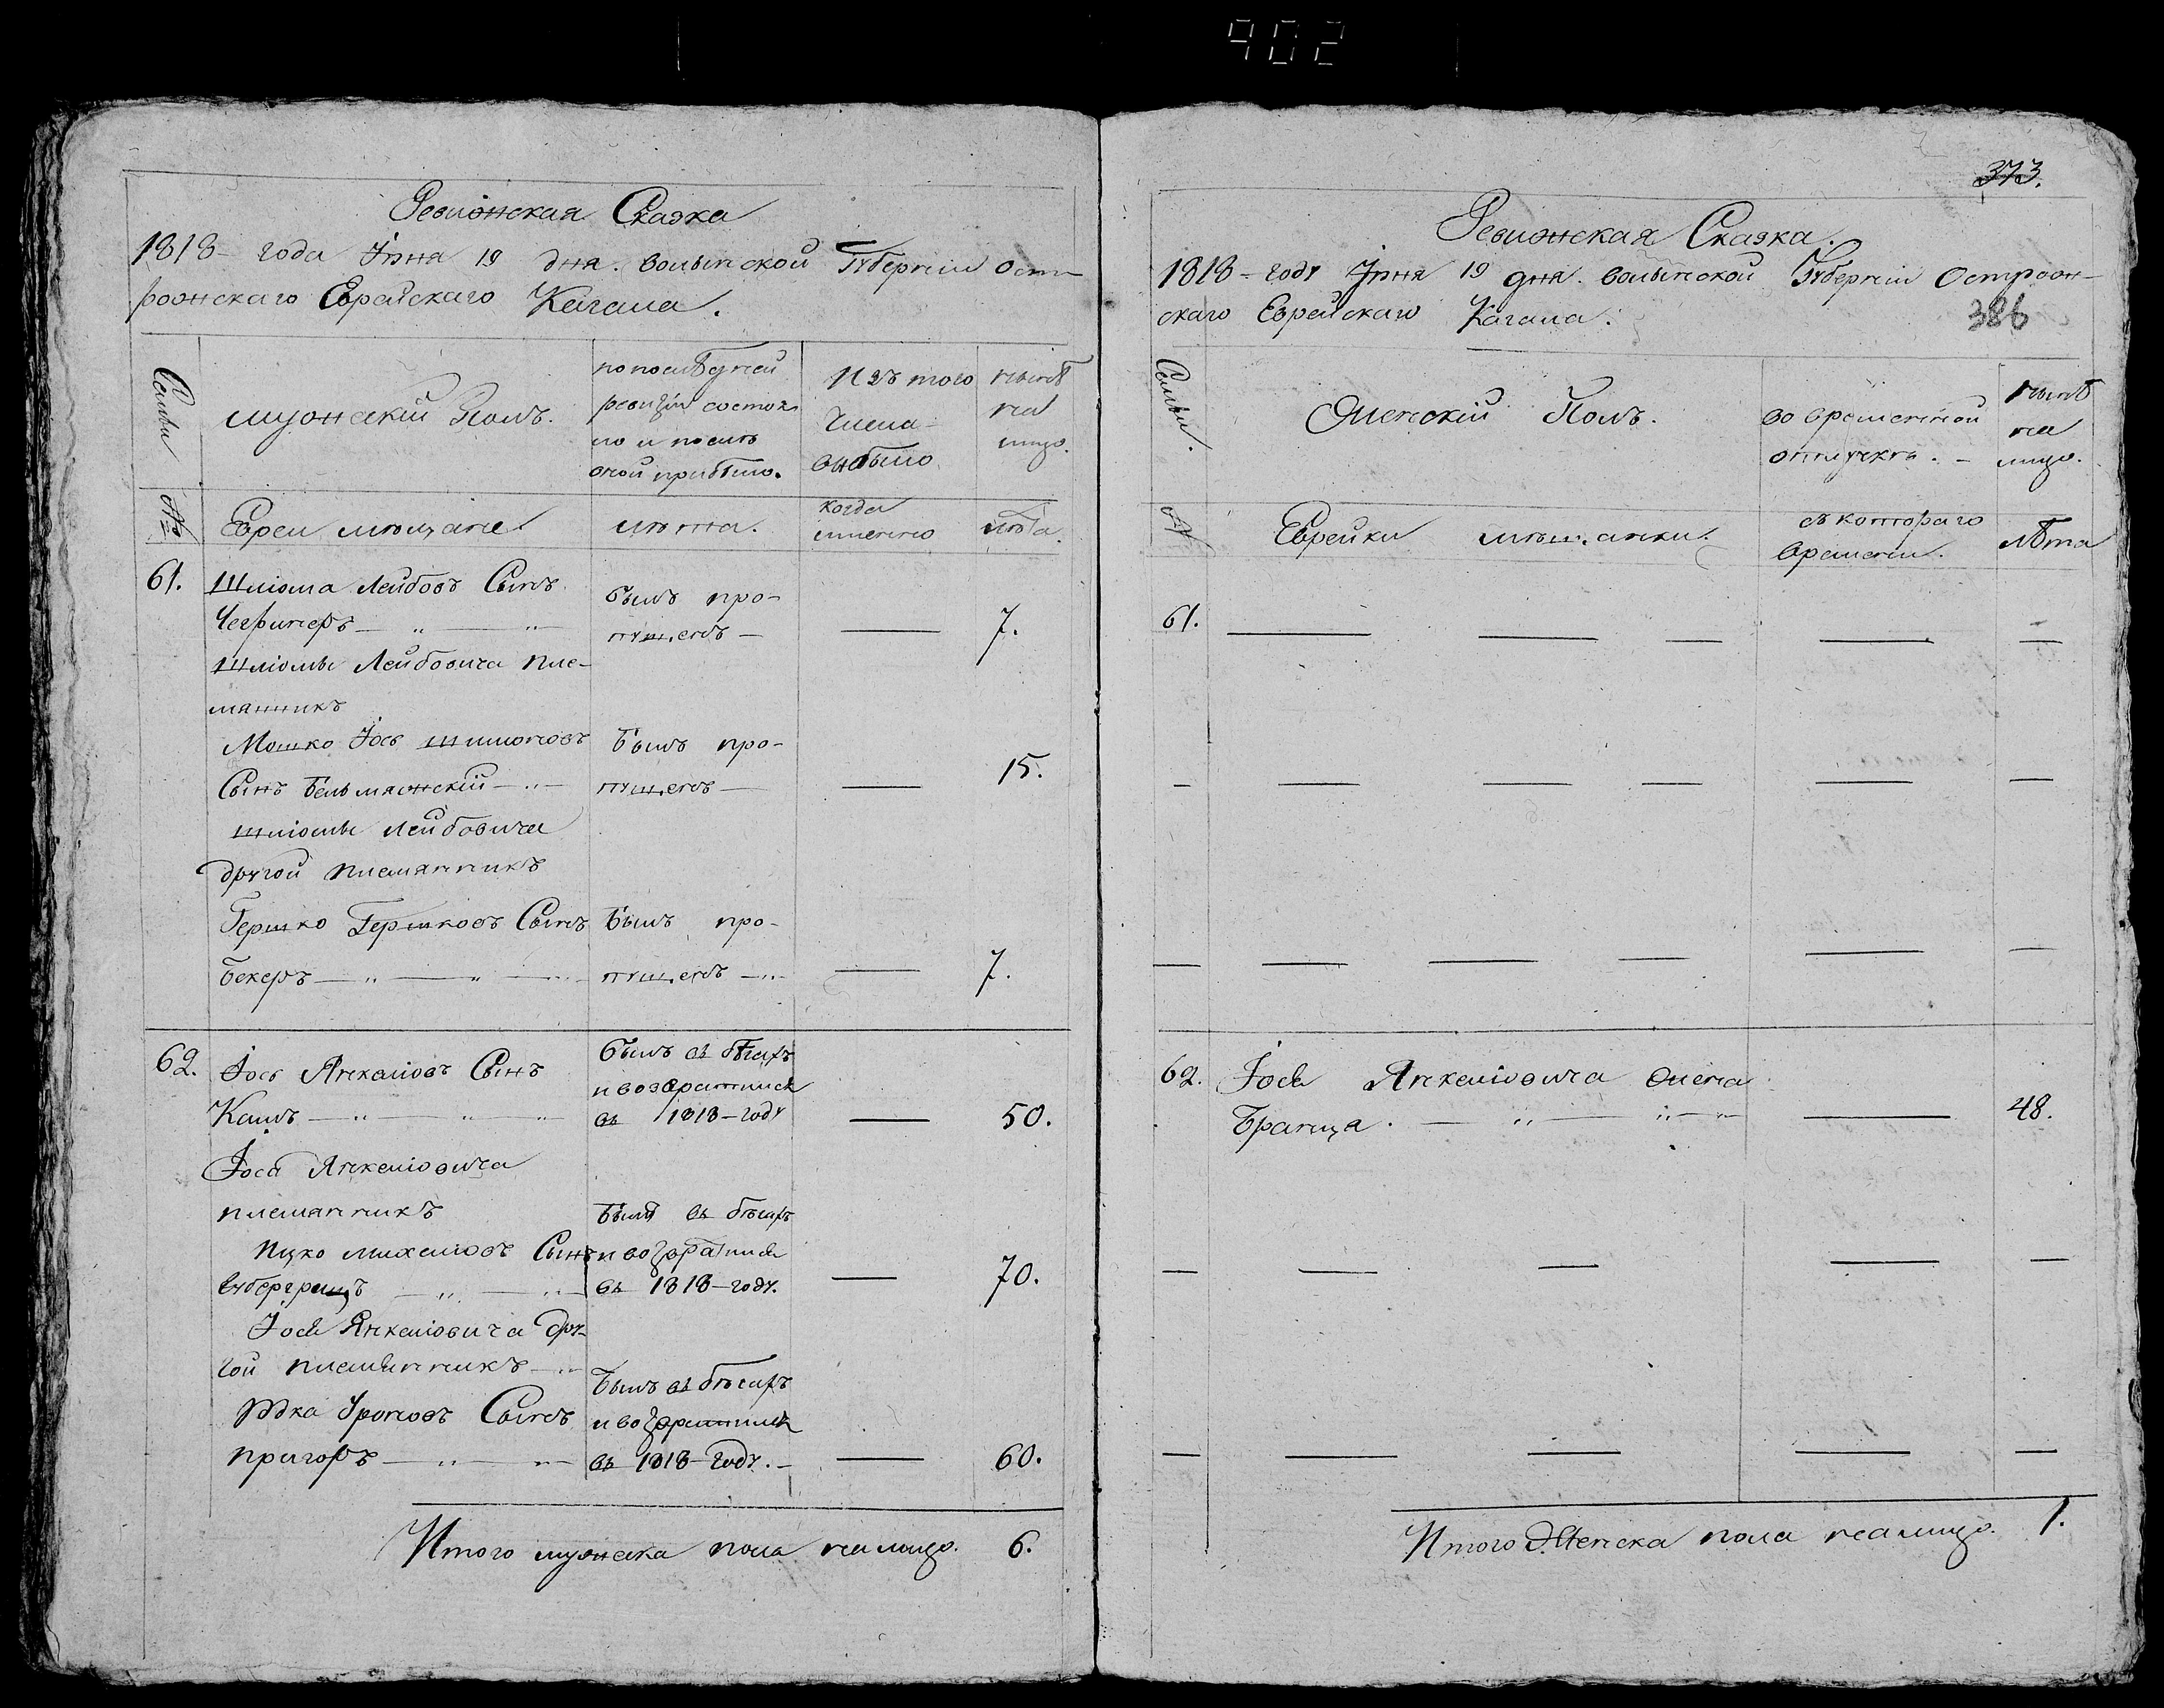 902
Ревижская Сказка
1818 - года Іюня 19 дня. волынской Губерніи Остро-
рожскаго Еврейскаго Кагала.
Семьи
мужескій Полъ.
по последней
ревизіи состоя
ло и после
оной прибыло.
Изъ того
числа
выбыло
ныне
на
лицо.
№
Евреи мещане.
лета.
когда
именно
лета.
61.
Шліома Лейбовъ Сынъ
Чегринеръ — „ — „
былъ про-
пущенъ —
— 7.
Шліомы Лейбовича пле-
манникъ
Мошко Іось Шлиомовъ
былъ про-
Сынъ Бельмажскій — „ —
пущенъ —
— 15.
Шліомы Лейбовича
другой племянникъ
Гершко Гершковъ Сынъ
Былъ про-
Бекеръ — „ — „ —
пущенъ — „ —
— 7.
62.
Іось Янкеліовъ Сынъ
Кацъ — „ — „ — „
былъ въ бегахъ
и возвратился
въ 1818 - году
— 50.
Іося Янкеліовича
племянникъ
Ицко Михеліовъ Сынъ
былъ въ бегахъ
и возвратился
въ 1818 - году.
— 70.
Іося Янкеліовича дру-
гой племянникъ — „
Сынъ
пригоръ — „ — „ —
Былъ въ бегахъ
и возвратился
въ 1818 - году. —
— 60.
Итого мужеска пола на лицо. 6.
373.
Ревижская Сказка.
1818 - году Іюня 19 дня. волынской Губерніи Острож-
скаго Еврейскаго Кагала.
386
Семьи.
Женскій Полъ.
во временной
отлучке. —
ныне
на
лицо.
№
Еврейки мещанки.
съ котораго
времени.
лѣта
61. — — — — —
— — — — — —
— — — — — —
62. Іося Янкеліовича жена
Бранца. — „ — „ — „ — 48.
— — — — —
— — — — —
Итого Женска пола на лицо. 1.